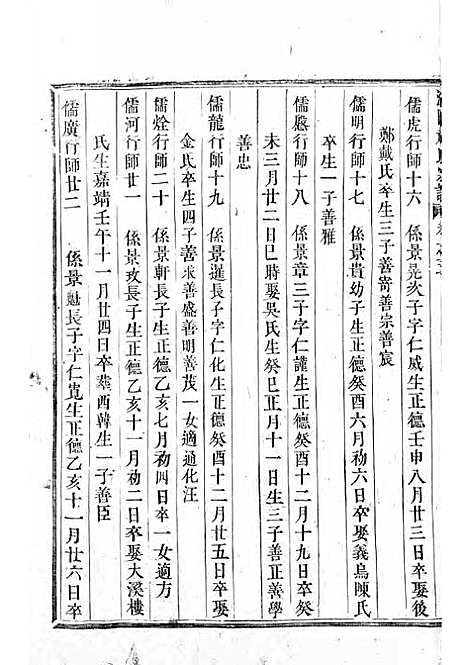 儒虎行師十六 係景晃次子字仁威生正德壬申八月廿三日卒娶後
鄭戴氏卒生三子善寄善宗善宸
儒明行師十七 係景貴幼子生正德癸酉六月初六日卒娶義烏陳氏
卒生一子善雅
儒 行師十八 係景章三子字仁謹生正德癸酉十二月十九日卒癸
未三月廿二日巳時娶吳氏生癸巳正月十一日生三子善正善學
善忠
儒龍行師十九 係景暹長子字仁化生正德癸酉十二月廿五日卒娶
金氏卒生四子善求善盛善明善茂一女適通化汪
儒烇行師二十 係景軒長子生正德乙亥七月初四日卒一女適方
儒河行師廿一 係景玫長子生正德乙亥十一月初二日卒娶大溪樓
氏生嘉靖壬午十一月廿四日卒葬西韓生一子善臣
儒廣行師廿二 係景魁長子字仁寬生正德乙亥十一月廿六日卒